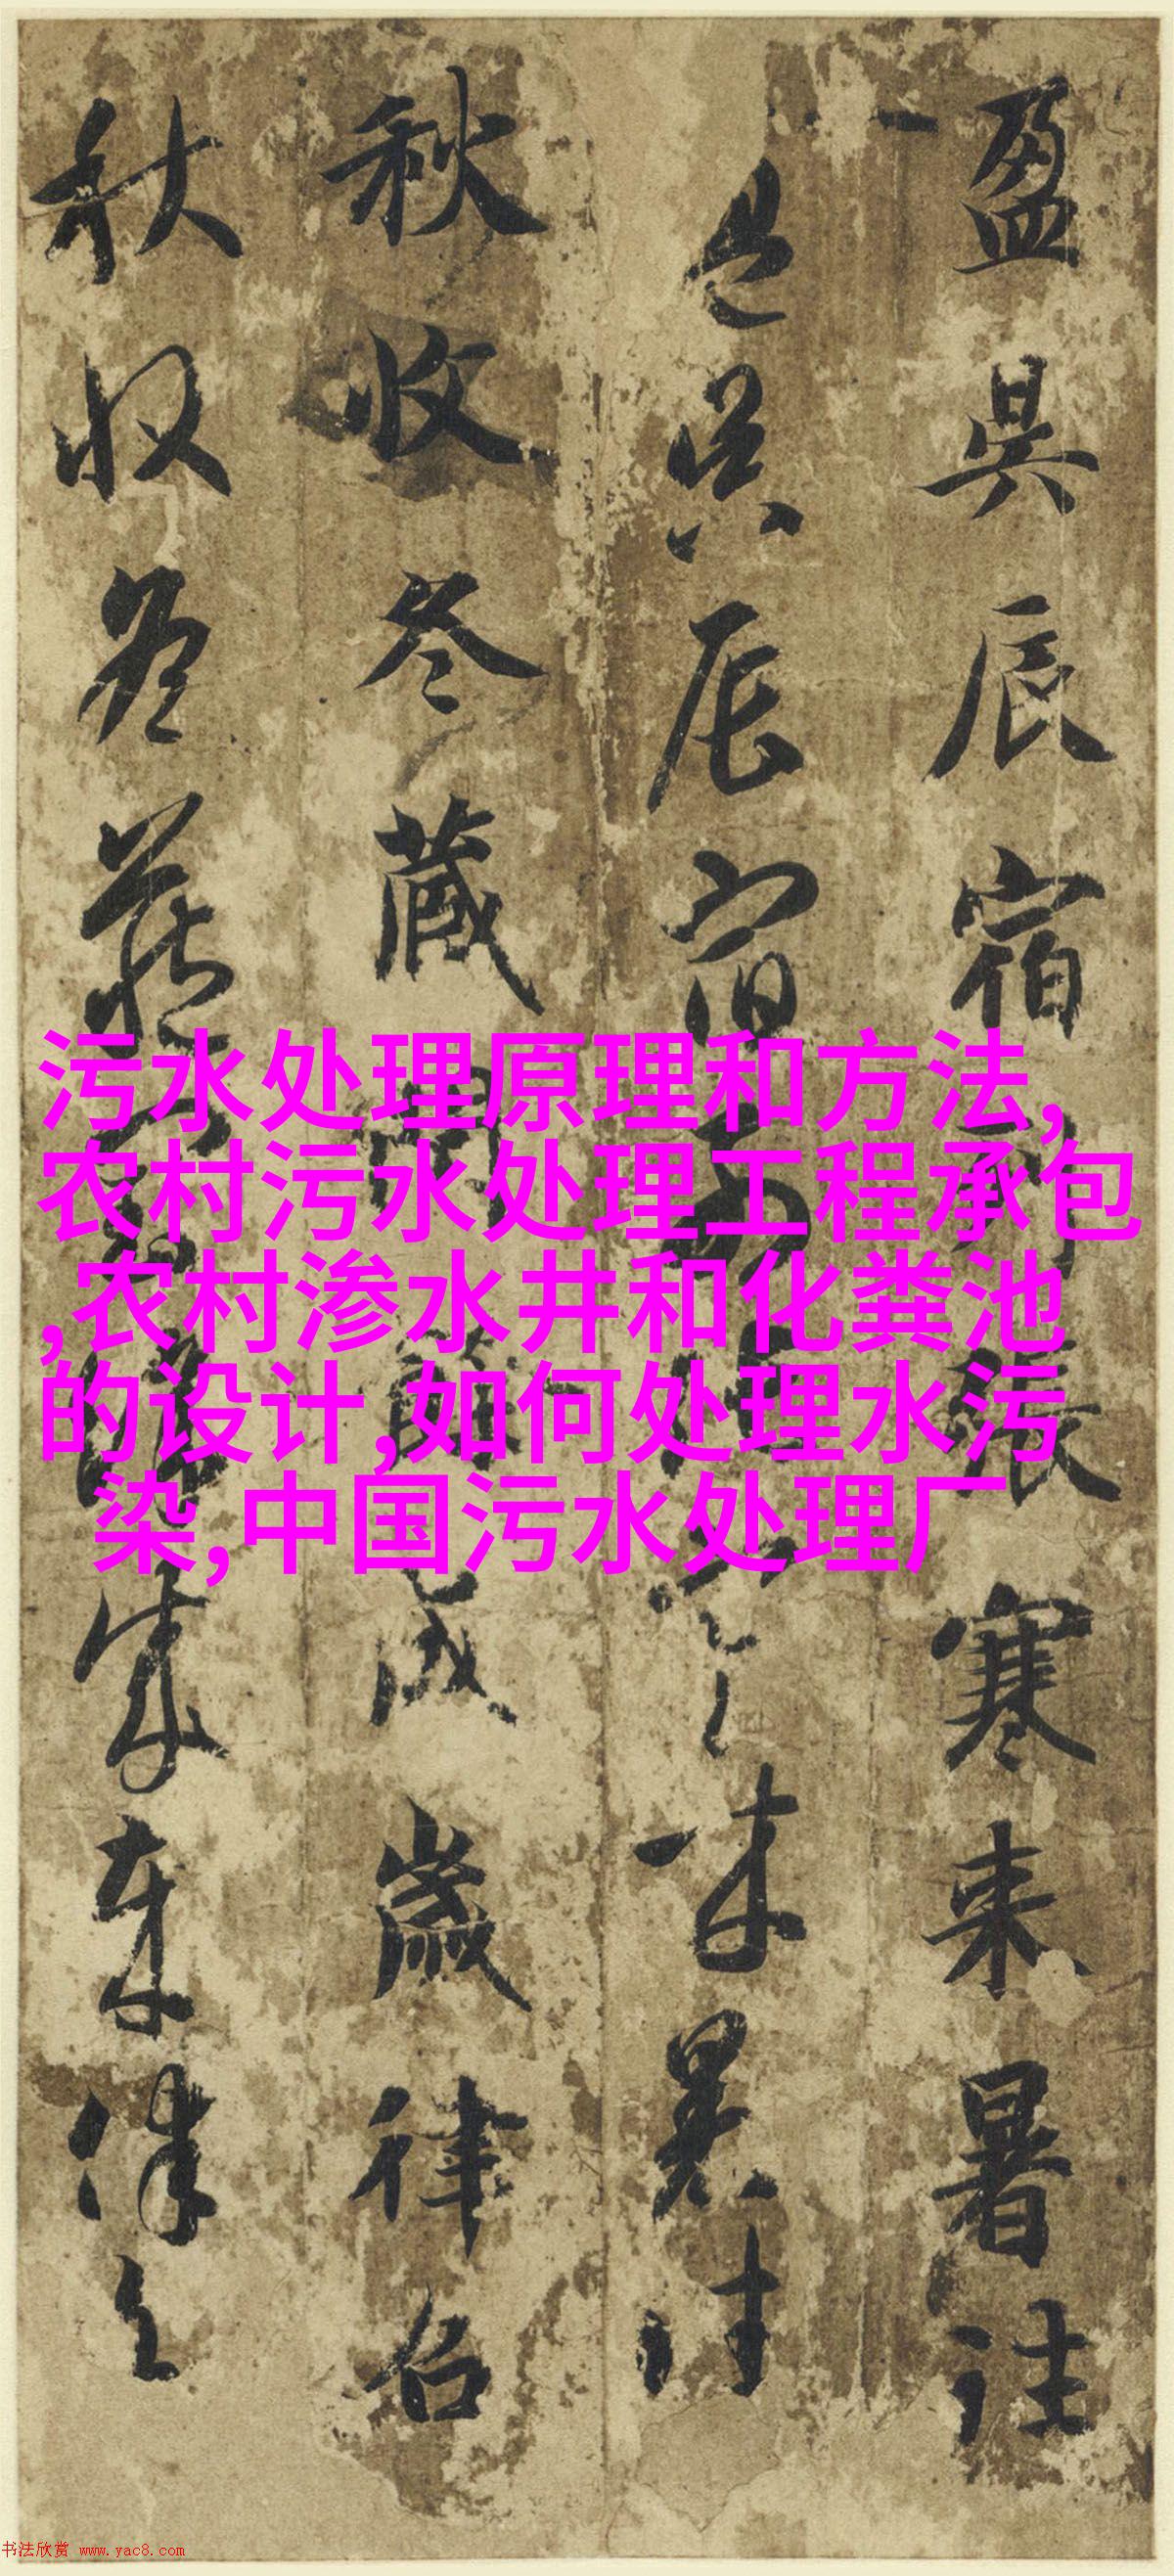 盈昃辰宿張寒来暑往
盈昃辰宿来暑往
秋收冬蔵閏成歲律召
秋收冬蔵成歲律召
污水处理原理和方法,
农村污水处理工程承包
,农村渗水井和化粪池
的设计,如何处理水污
染,中国污水处理厂
书法欣赏 www.yac8.com